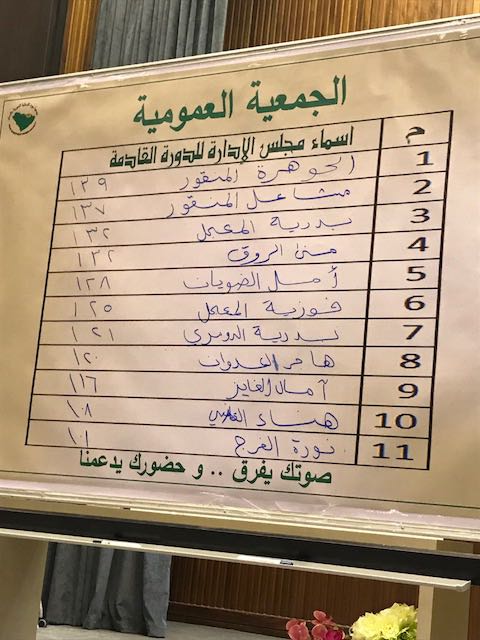 الجمعية العمومية
م اسماء مجلس الإدارة للدورة القادمة
1 الجوهرة المنقور ١٣٩
2 مشاعل المنقور ١٣٧
3 بدرية المعمل ١٣٢
4 منى الروق ١٣٢
5 أمل الضويان ١٢٨
6 فوزية المعمل ١٢٥
7 بدرية الدوسري ١٢١
8 هاجر العدوان ١٢٠
9 آمال الفايز ١١٦
10 هناء ١٠٨
11 نورة الفرج ١٠١
صوتك يفرق .. و حضورك يدعمنا